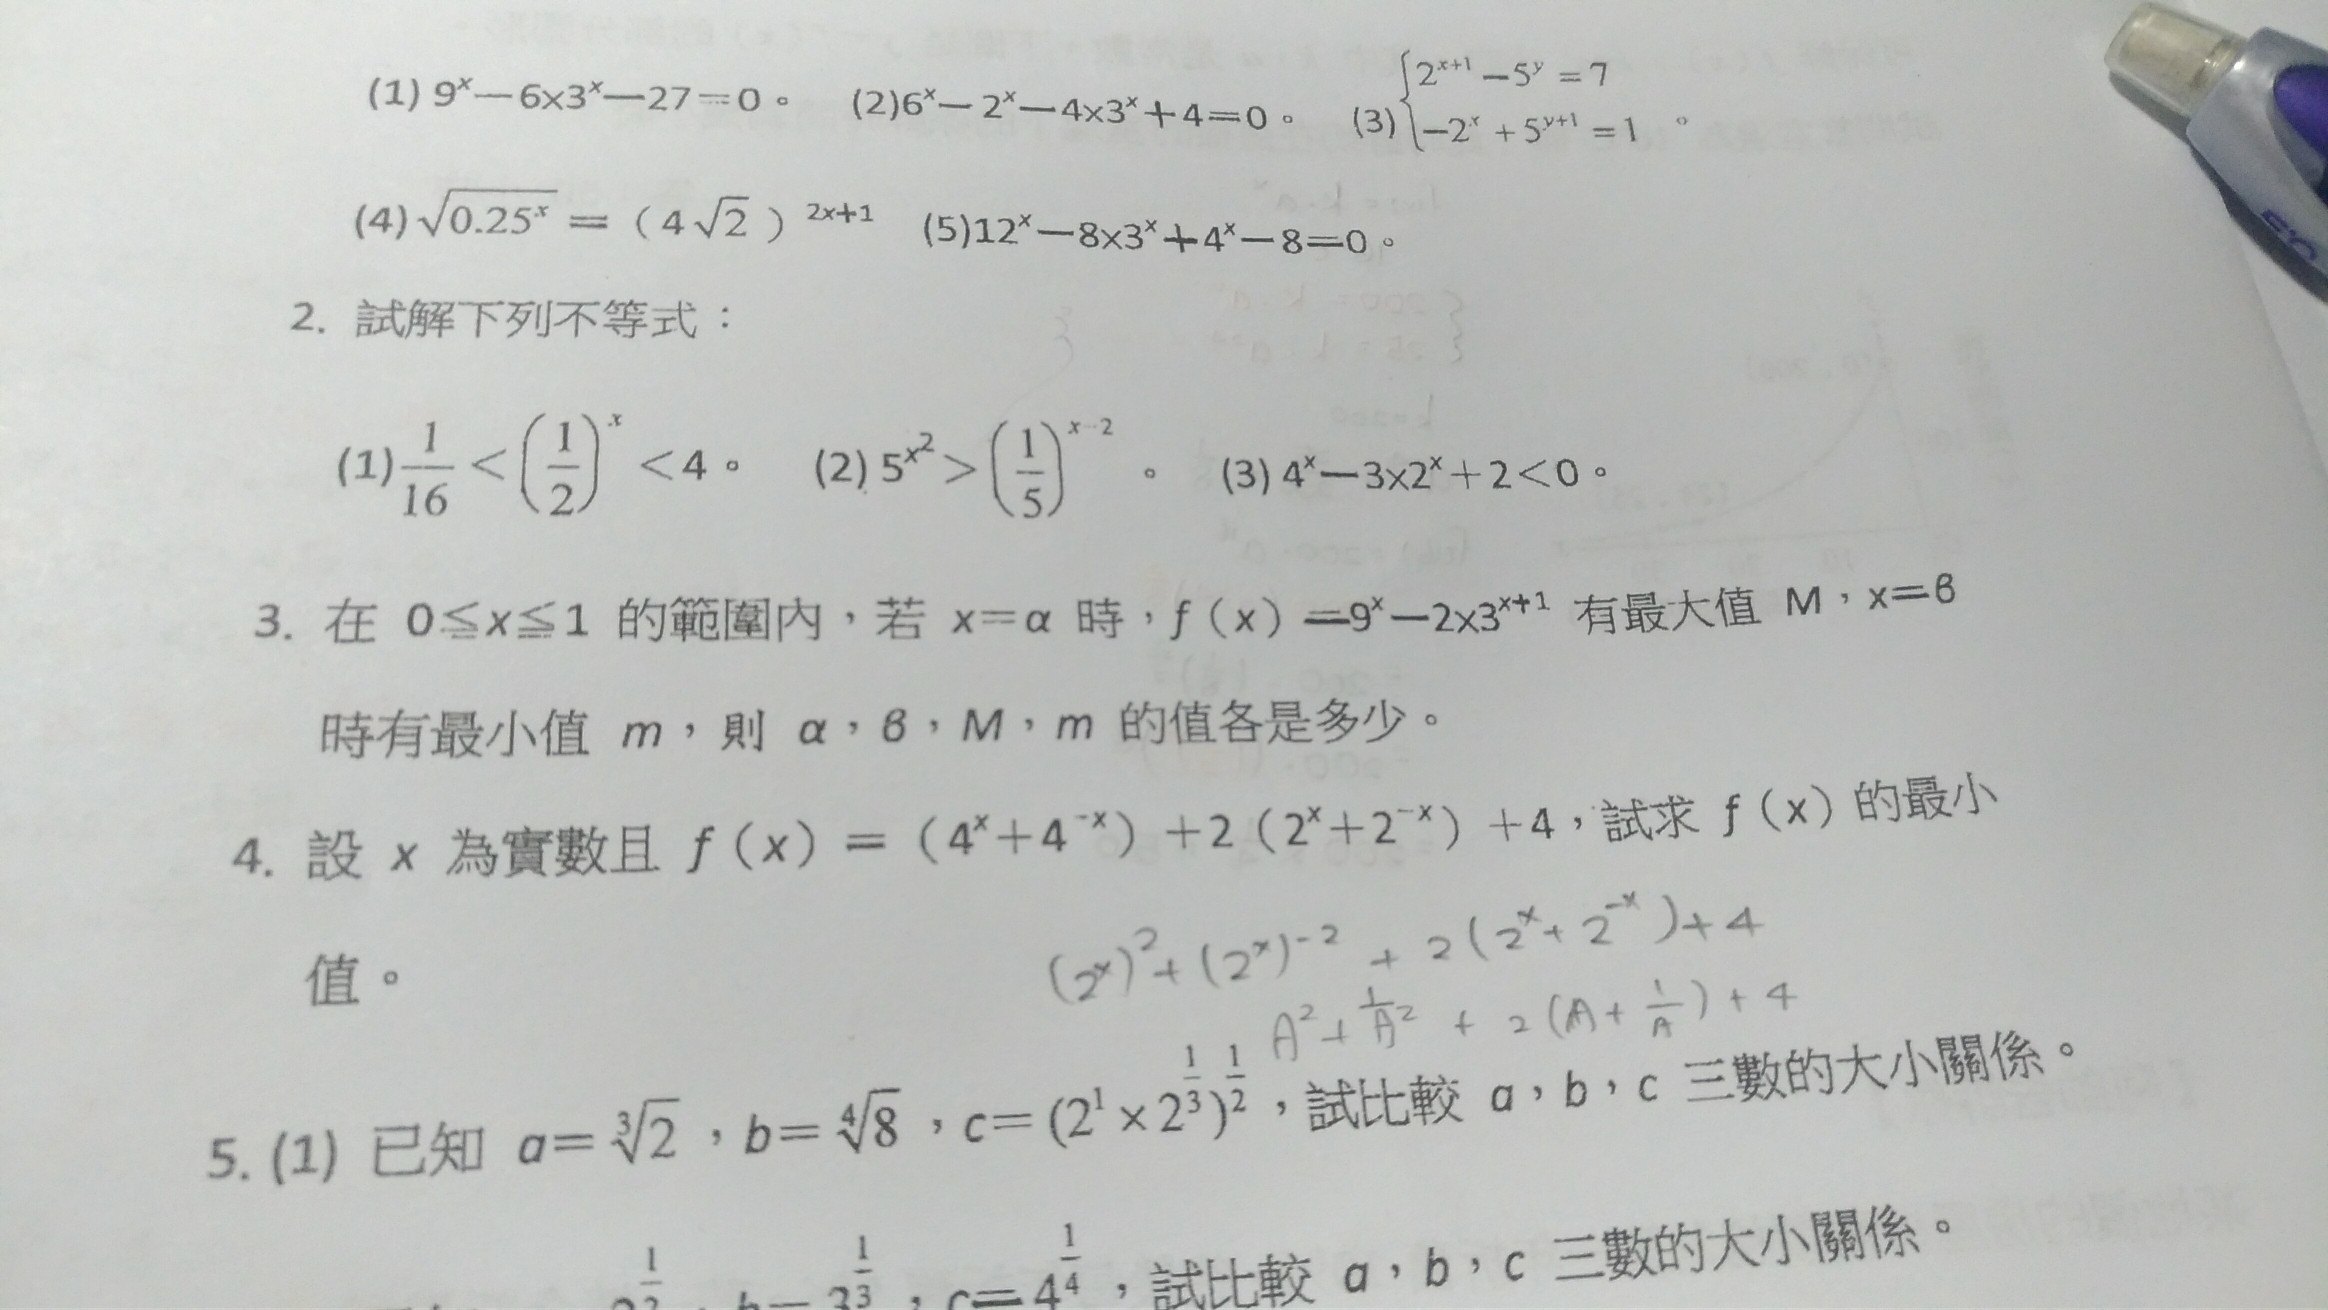 (1) 9ˣ－6x3ˣ－27＝0。 (2)6ˣ－2ˣ－4x3ˣ＋4＝0。 (3){2ˣ⁺¹ －5ʸ ＝7
－2ˣ ＋5ʸ⁺¹ ＝1 。
(4)√(0.25ˣ) ＝（4√2）²ˣ⁺¹ (5)12ˣ－8x3ˣ＋4ˣ－8＝0。
2. 試解下列不等式：
(1) 1/16 ＜(1/2)ˣ ＜4。 (2) 5^(x²)＞(1/5)^(x-2) 。 (3) 4ˣ－3x2ˣ＋2＜0。
3. 在 0≦x≦1 的範圍內，若 x＝α 時，f（x）＝9ˣ－2x3ˣ⁺¹ 有最大值 M，x＝β
時有最小值 m，則 α，β，M，m 的值各是多少。
4. 設 x 為實數且 f（x）＝（4ˣ＋4⁻ˣ）＋2（2ˣ＋2⁻ˣ）＋4，試求 f（x）的最小
值。
(2ˣ)²+(2ˣ)⁻² + 2(2ˣ+2⁻ˣ)+4
A²+1/A² + 2(A+1/A)+4
5. (1) 已知 a＝∛2，b＝∜8，c＝(2¹×2^(1/3))^(1/2)，試比較 a，b，c 三數的大小關係。
b＝3^(1/3)，c＝4^(1/4)，試比較 a，b，c 三數的大小關係。